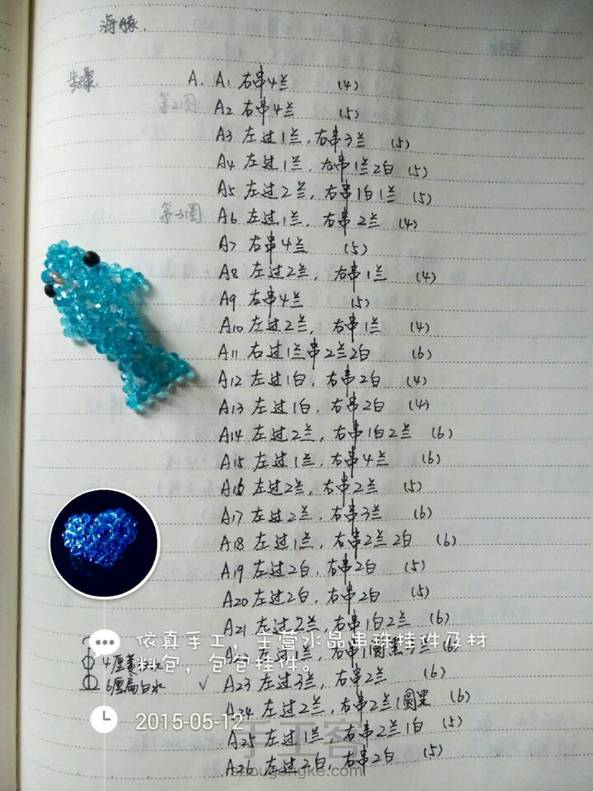 海豚.
步骤. A. A1 右串4兰 (4)
第2圈 A2 右串4兰 (5)
A3 左过1兰,右串3兰 (5)
A4 左过1兰,右串1兰2白 (5)
A5 左过2兰,右串1白1兰 (5)
第3圈 A6 左过1兰,右串2兰 (4)
A7 右串4兰 (5)
A8 左过2兰,右串1兰 (4)
A9 右串4兰 (5)
A10 左过2兰,右串1兰 (4)
A11 右过1兰串2兰2白 (6)
A12 左过1白,右串2白 (4)
A13 左过1白,右串2白 (4)
A14 左过2兰,右串1白2兰 (6)
A15 左过1兰,右串4兰 (6)
A16 左过2兰,右串2兰 (5)
A17 左过2兰,右串3兰 (6)
A18 左过1兰,右串2兰2白 (6)
A19 左过2白,右串2白 (5)
A20 左过2白,右串2白 (5)
A21 左过2兰,右串1白2兰 (6)
依真手工,主营水晶串珠挂件及材
料包,包包挂件。
A22 左过1兰,右串1圆黑 (6)
√ A23 左过3兰,右串2兰 (6)
6厘扁白水
A24 左过2兰,右串2兰1圆黑 (6)
2015-05-12
A25 左过1兰,右串2兰1白 (5)
手工客
A26 左过2白,右串2白 (5)
shougongke.com